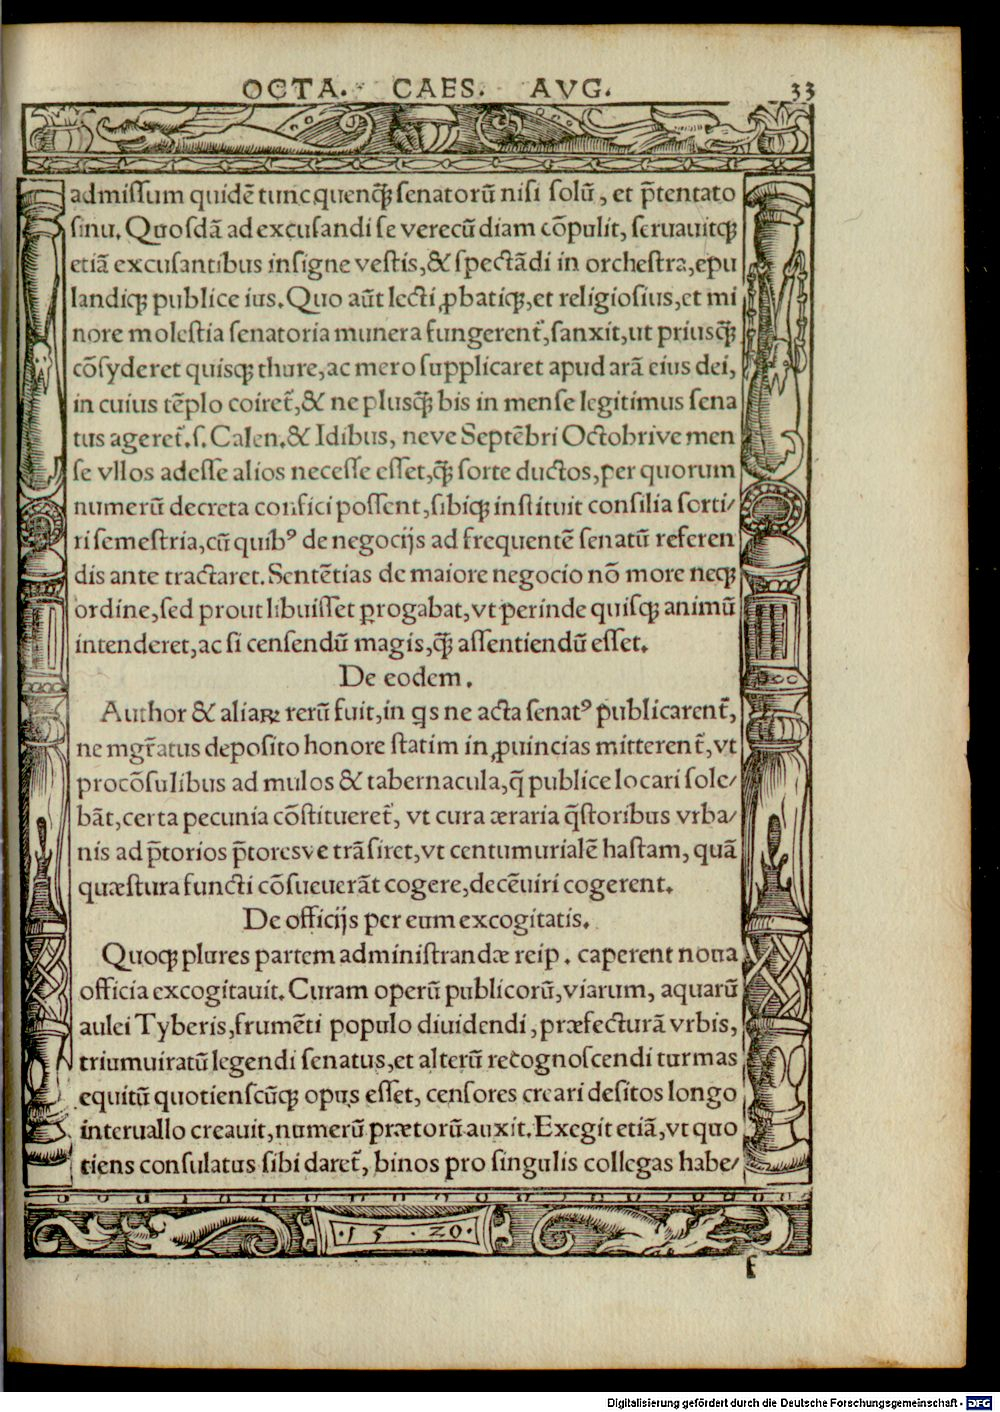 OCTA. CAES. AVG. 33
admissum quidē tunc quenq̄ꝫ senatorū nisi solū, et p̄tentato
sinu. Quosdā ad excusandi se verecūdiam cōpulit, seruauitqꝫ
etiā excusantibus insigne vestis, & spectādi in orchestra, epu
landiqꝫ publice ius. Quo aūt lecti ꝓbatiqꝫ, et religiosius, et mi
nore molestia senatoria munera fungerent᷑, sanxit, ut priusq̄ꝫ
cōsyderet quisqꝫ thure, ac mero supplicaret apud arā eius dei,
in cuius tēplo coiret᷑, & ne plusq̄ꝫ bis in mense legitimus sena
tus ageret᷑. s. Calen. & Idibus, neve Septēbri Octobrive men
se vllos adesse alios necesse esset, q̄ꝫ sorte ductos, per quorum
numerū decreta confici possent, sibiqꝫ instituit consilia sorti/
ri semestria, cū quibꝰ de negocijs ad frequentē senatū referen
dis ante tractaret. Sentētias de maiore negocio nō more neqꝫ
ordine, sed prout libuisset ꝑrogabat, vt perinde quisqꝫ animū
intenderet, ac si censendū magis, q̄ꝫ assentiendū esset.
De eodem.
Author & aliaꝝ rerū fuit, in qͥs ne acta senatꝰ publicarent᷑,
ne mgr̄atus deposito honore statim in ꝓuincias mitterent᷑, vt
procōsulibus ad mulos & tabernacula, q̄ publice locari sole/
bāt, certa pecunia cōstitueret᷑, vt cura æraria q̄storibus vrba/
nis ad p̄torios p̄toresve trāsiret, vt centumurialē hastam, quā
quæstura functi cōsueuerāt cogere, decēuiri cogerent.
De officijs per eum excogitatis.
Quoqꝫ plures partem administrandæ reip. caperent noua
officia excogitauit. Curam operū publicorū, viarum, aquarū
aulei Tyberis, frumēti populo diuidendi, præfecturā vrbis,
triumuiratū legendi senatus, et alterū recognoscendi turmas
equitū quotienscūqꝫ opus esset, censores creari desitos longo
interuallo creauit, numerū prætorū auxit. Exegit etiā, vt quo
tiens consulatus sibi daret᷑, binos pro singulis collegas habe/
· 15 · 20 ·
f
Digitalisierung gefördert durch die Deutsche Forschungsgemeinschaft - DFG